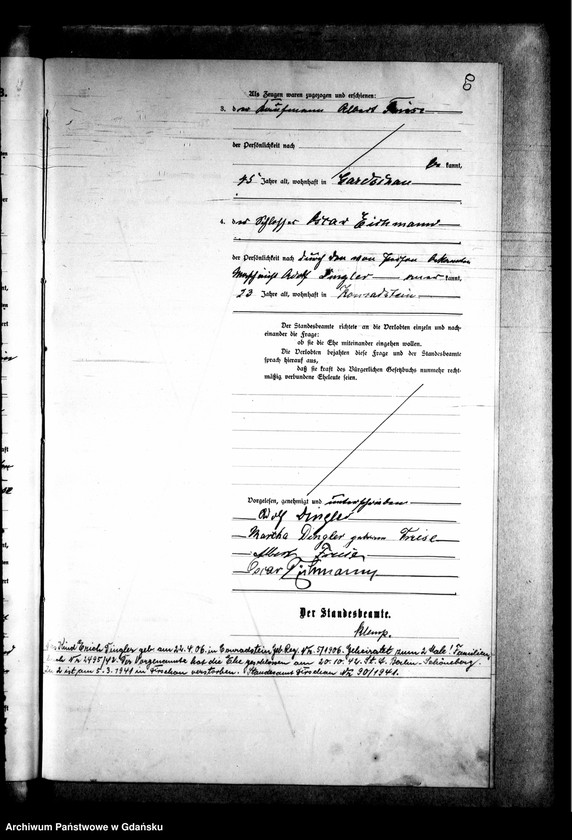 8
Als Zeugen waren zugezogen und erschienen:
3. der Kaufmann Albert Friese
der Persönlichkeit nach
be kannt,
45 Jahre alt, wohnhaft in
4. der Schlosser Oscar Eichmann
der Persönlichkeit nach durch den von Person bekannten
Adolf Dingler aner kannt,
23 Jahre alt, wohnhaft in Konradstein
Der Standesbeamte richtete an die Verlobten einzeln und nach-
einander die Frage:
ob sie die Ehe miteinander eingehen wollen.
Die Verlobten bejahten diese Frage und der Standesbeamte
sprach hierauf aus,
daß sie kraft des Bürgerlichen Gesetzbuchs nunmehr recht-
mäßig verbundene Eheleute seien.
Vorgelesen, genehmigt und unterschrieben
Adolf Dingler
Martha Dingler geborene Friese
Albert Friese
Oscar Eichmann
Der Standesbeamte.
Klemp.
Kind Erich Dingler geb. am 22.4.06. in Conradstein Geb. Reg. Nr. 51/1906. Geheiratet zum 2 Male! Familien
Nr 2495/42. Der Vorgenannte hat die Ehe geschlossen am 20.10.42. St. A. Berlin-Schöneberg
ist am 5.3.1941 in Dirschau verstorben. Standesamt Dirschau Nr. 90/1941.
Archiwum Państwowe w Gdańsku